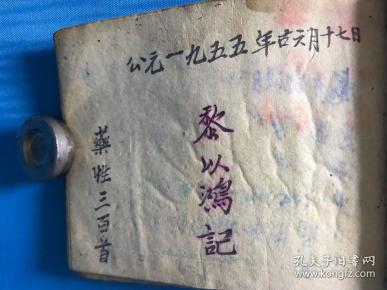 公元一九五五年古六月十七日
黎以鴻記
藥性三百首
孔夫子旧书网